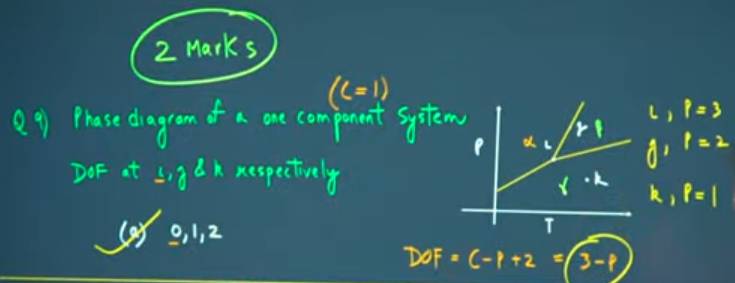 2 Marks
(C=1)
Q 9) Phase diagram of a one component system
DOF at i, g & k respectively
(a) 0,1,2
P
α i
γ
. k
T
i, P=3
g, P=2
k, P=1
DOF = C-P+2 = 3-P